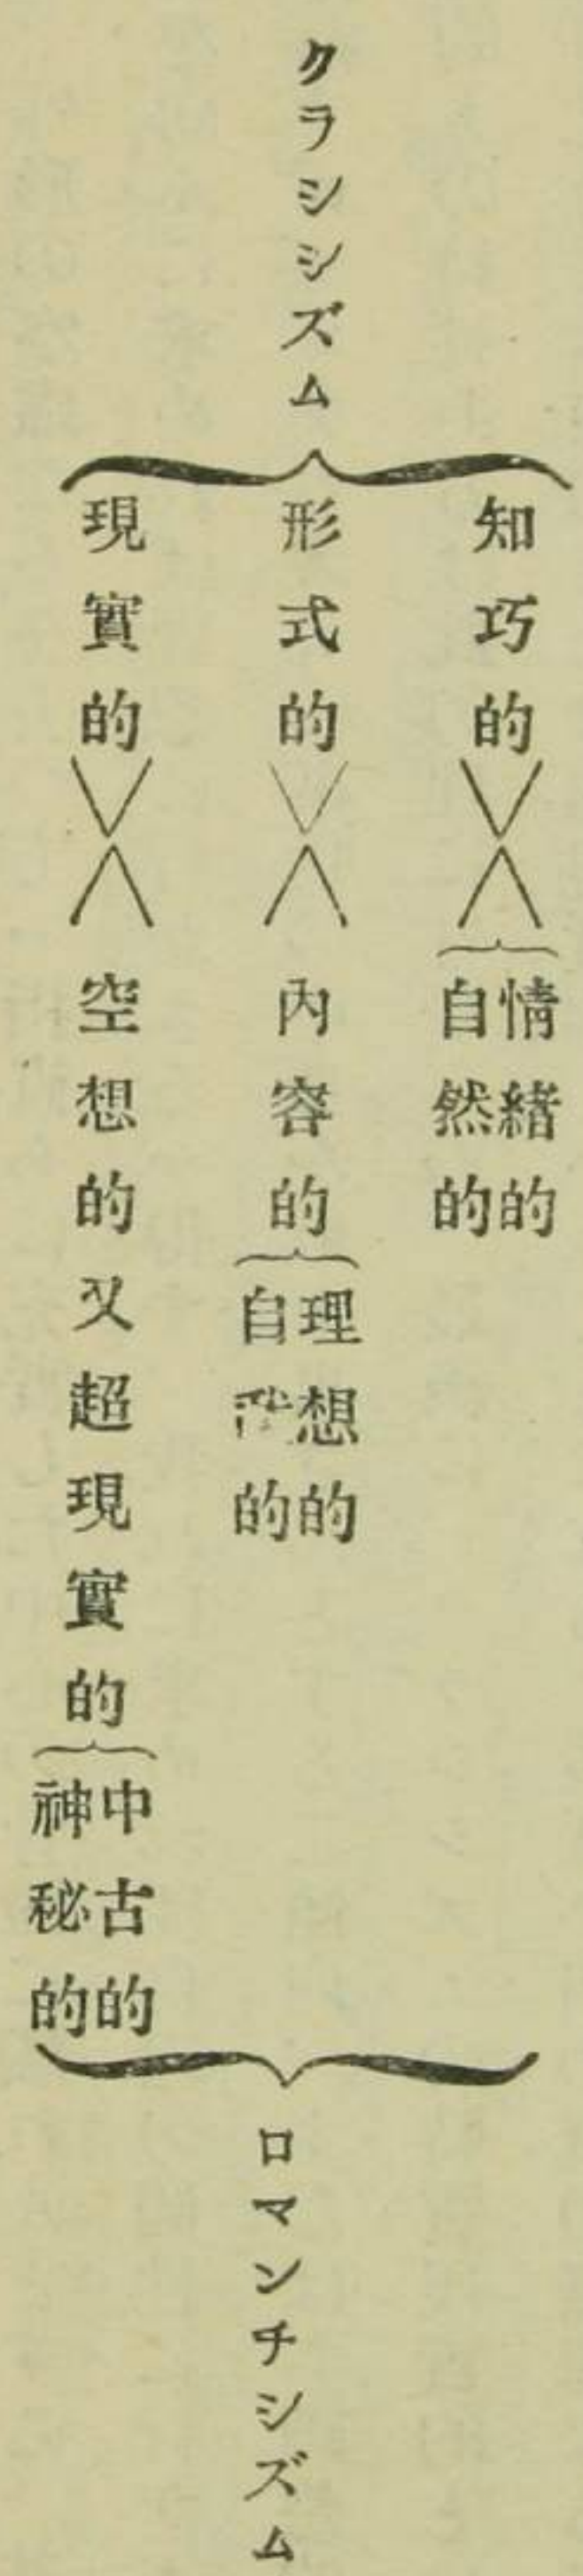 クラシシズム
知巧的
情緖的
自然的
形式的
內容的
理想的
自我的
現實的
空想的又超現實的
中古的
神秘的
ロマンチシズム